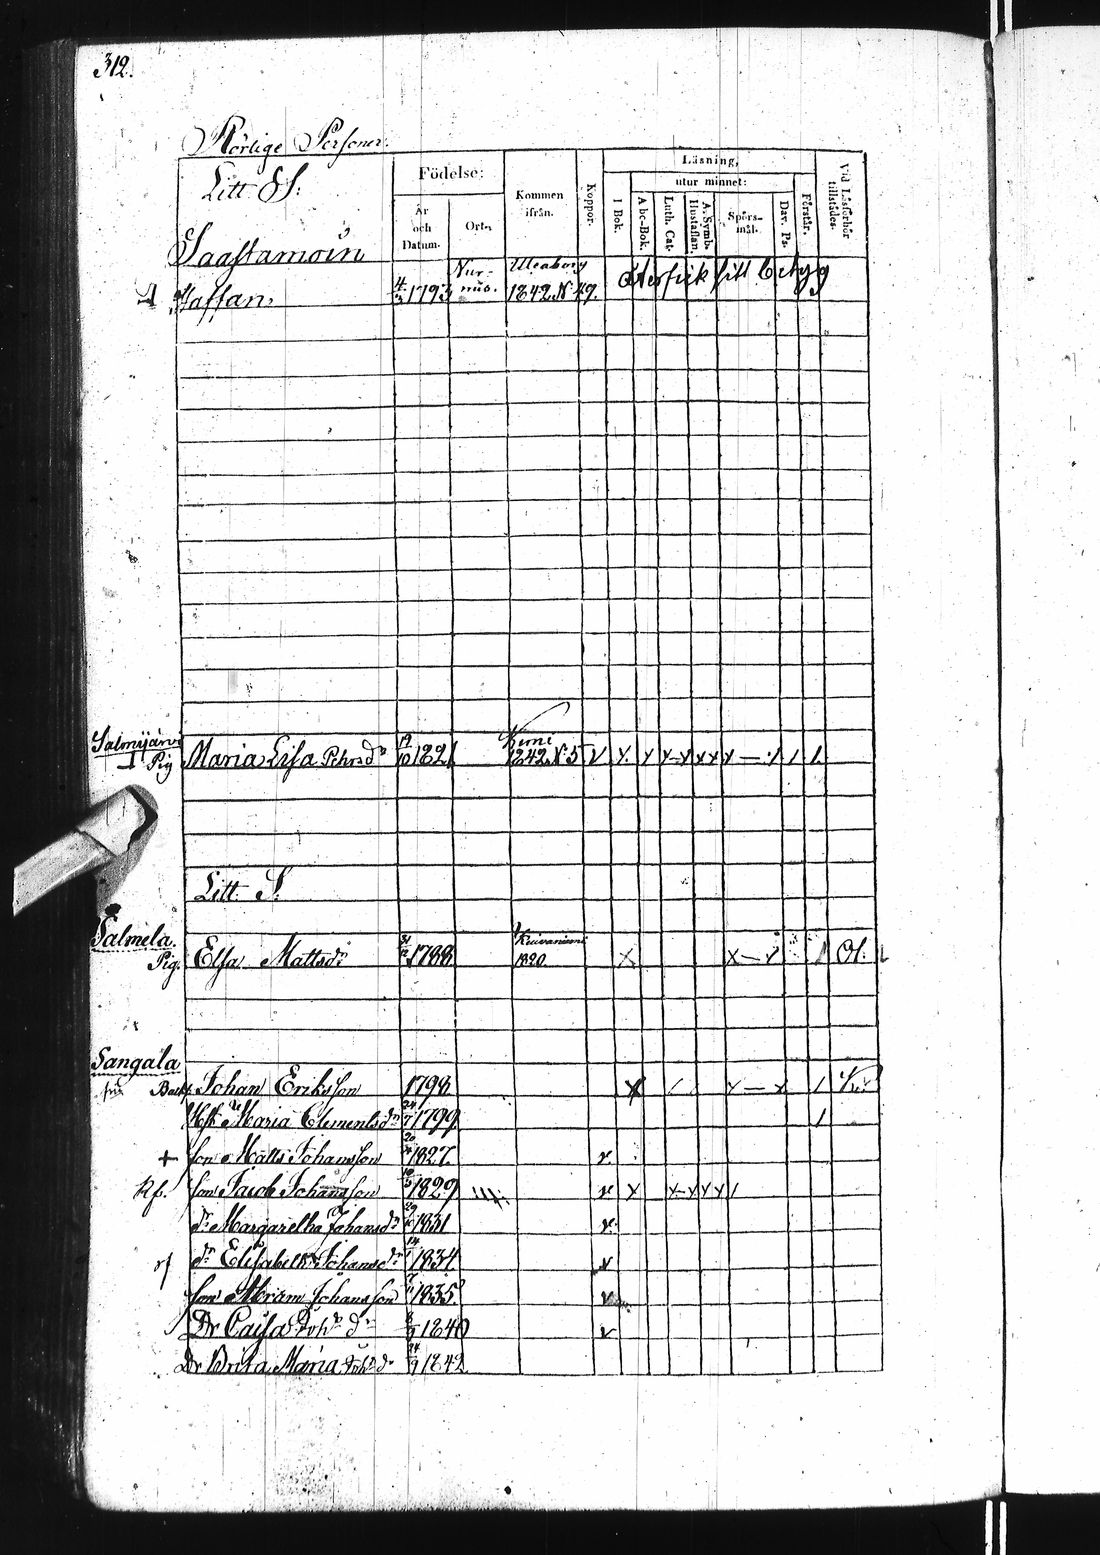 312.
Rörlige Personer.
Litt S:
Födelse:
År och Datum.
Ort.
Kommen ifrån.
Koppor.
Läsning,
utur minnet:
I Bok.
Abc-Bok.
Luth. Cat.
A. Symb. Hustaflan.
Spörs-mål.
Dav. Ps.
Förstår.
Vid Läsförhör tillstädes.
Saastamoin
Staffan, 4/3 1793 Nur-mis. Uleaborg 1842 N 49. Återfick sitt betyg
Salmijärvi
Pig Maria Lisa Pehrsdr 19/10 1821 Kimi 1842 N:5 v x x x-x x x x — 1 1
Litt. S:
Salmela.
Pig. Elsa Mattsdr 31/12 1788 1820. x x — v
Sangala
Johan Eriksson 1798 x / / x — x /
Maria Clementsdr 24/7 1799 /
+ son Matts Johansson 1827. v
Rf. son Jacob Johansson 1829 v x x-x x x /
dr Margaretha Johansdr 1831 v
dr Elisabeth Johansdr 14/1 1834 v
son Johansson 1835 v
Dr Caisa Johs dr 1840 v
Dr Brita Maria Johs dr 24/9 1842